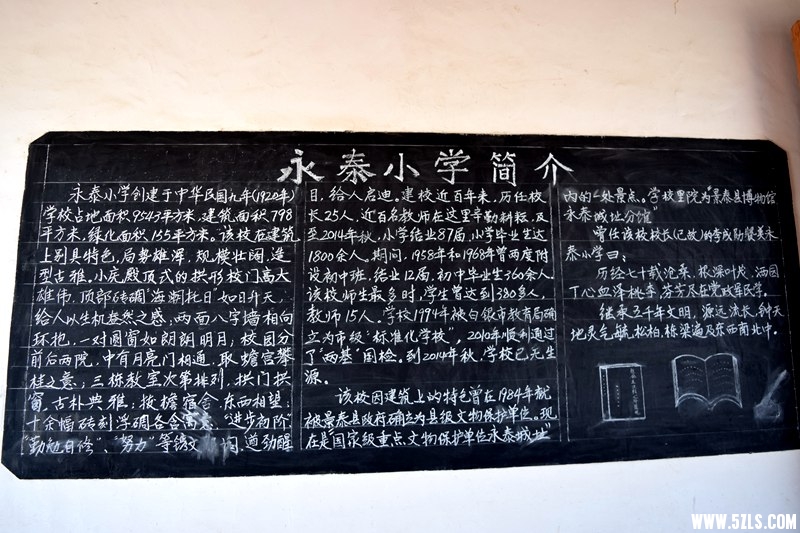 永泰小学简介
永泰小学创建于中华民国九年(1920年)
学校占地面积9545平方米,建筑面积798
平方米,绿化面积155平方米。该校在建筑
上别具特色,局势雄浑,规模壮阔,造
型古雅。小庑殿顶式的拱形校门高大
雄伟,顶部砖碉"海潮托日"如日升天,
给人以生机盎然之感;两面八字墙相向
环抱,一对圆窗如朗朗明月;校园分
前后两院,中有月亮门相通,取蟾宫攀
桂之意;三栋教室次第排列,拱门拱
窗,古朴典雅;披檐宿舍,东西相望;
十余幅砖刻浮碉各含寓意,"进步初阶"
"勤勉自修"、"努力"等镌文 间,遒劲醒
目,给人启迪。建校近百年来,历任校
长25人,近百名教师在这里辛勤耕耘,及
至2014年秋,小学结业87届,小学毕业生达
1800余人,期间,1958年和1968年曾两度附
设初中班,结业12届,初中毕业生360余人。
该校师生最多时,学生曾达到380多人,
教师15人。学校1994年被白银市教育局确
立为市级"标准化学校",2010年顺利通过
了"两基"国检。到2014年秋,学校已无生
源。
该校因建筑上的特色曾在1984年就
被景泰县政府确立为县级文物保护单位。现
在是"国家级重点文物保护单位永泰城址"
内的一处景点。学校里院为"景泰县博物馆
永泰城址分馆"
曾任该校校长(已故)的李成勋赞美永
泰小学曰:
历经七十载沧桑,根深叶茂,洒园
丁心血泽桃李,芬芳及在党政军民学。
继承五千年文明,源远流长,钟天
地灵气毓松柏,栋梁遍及东西南北中。
WWW.5ZLS.COM